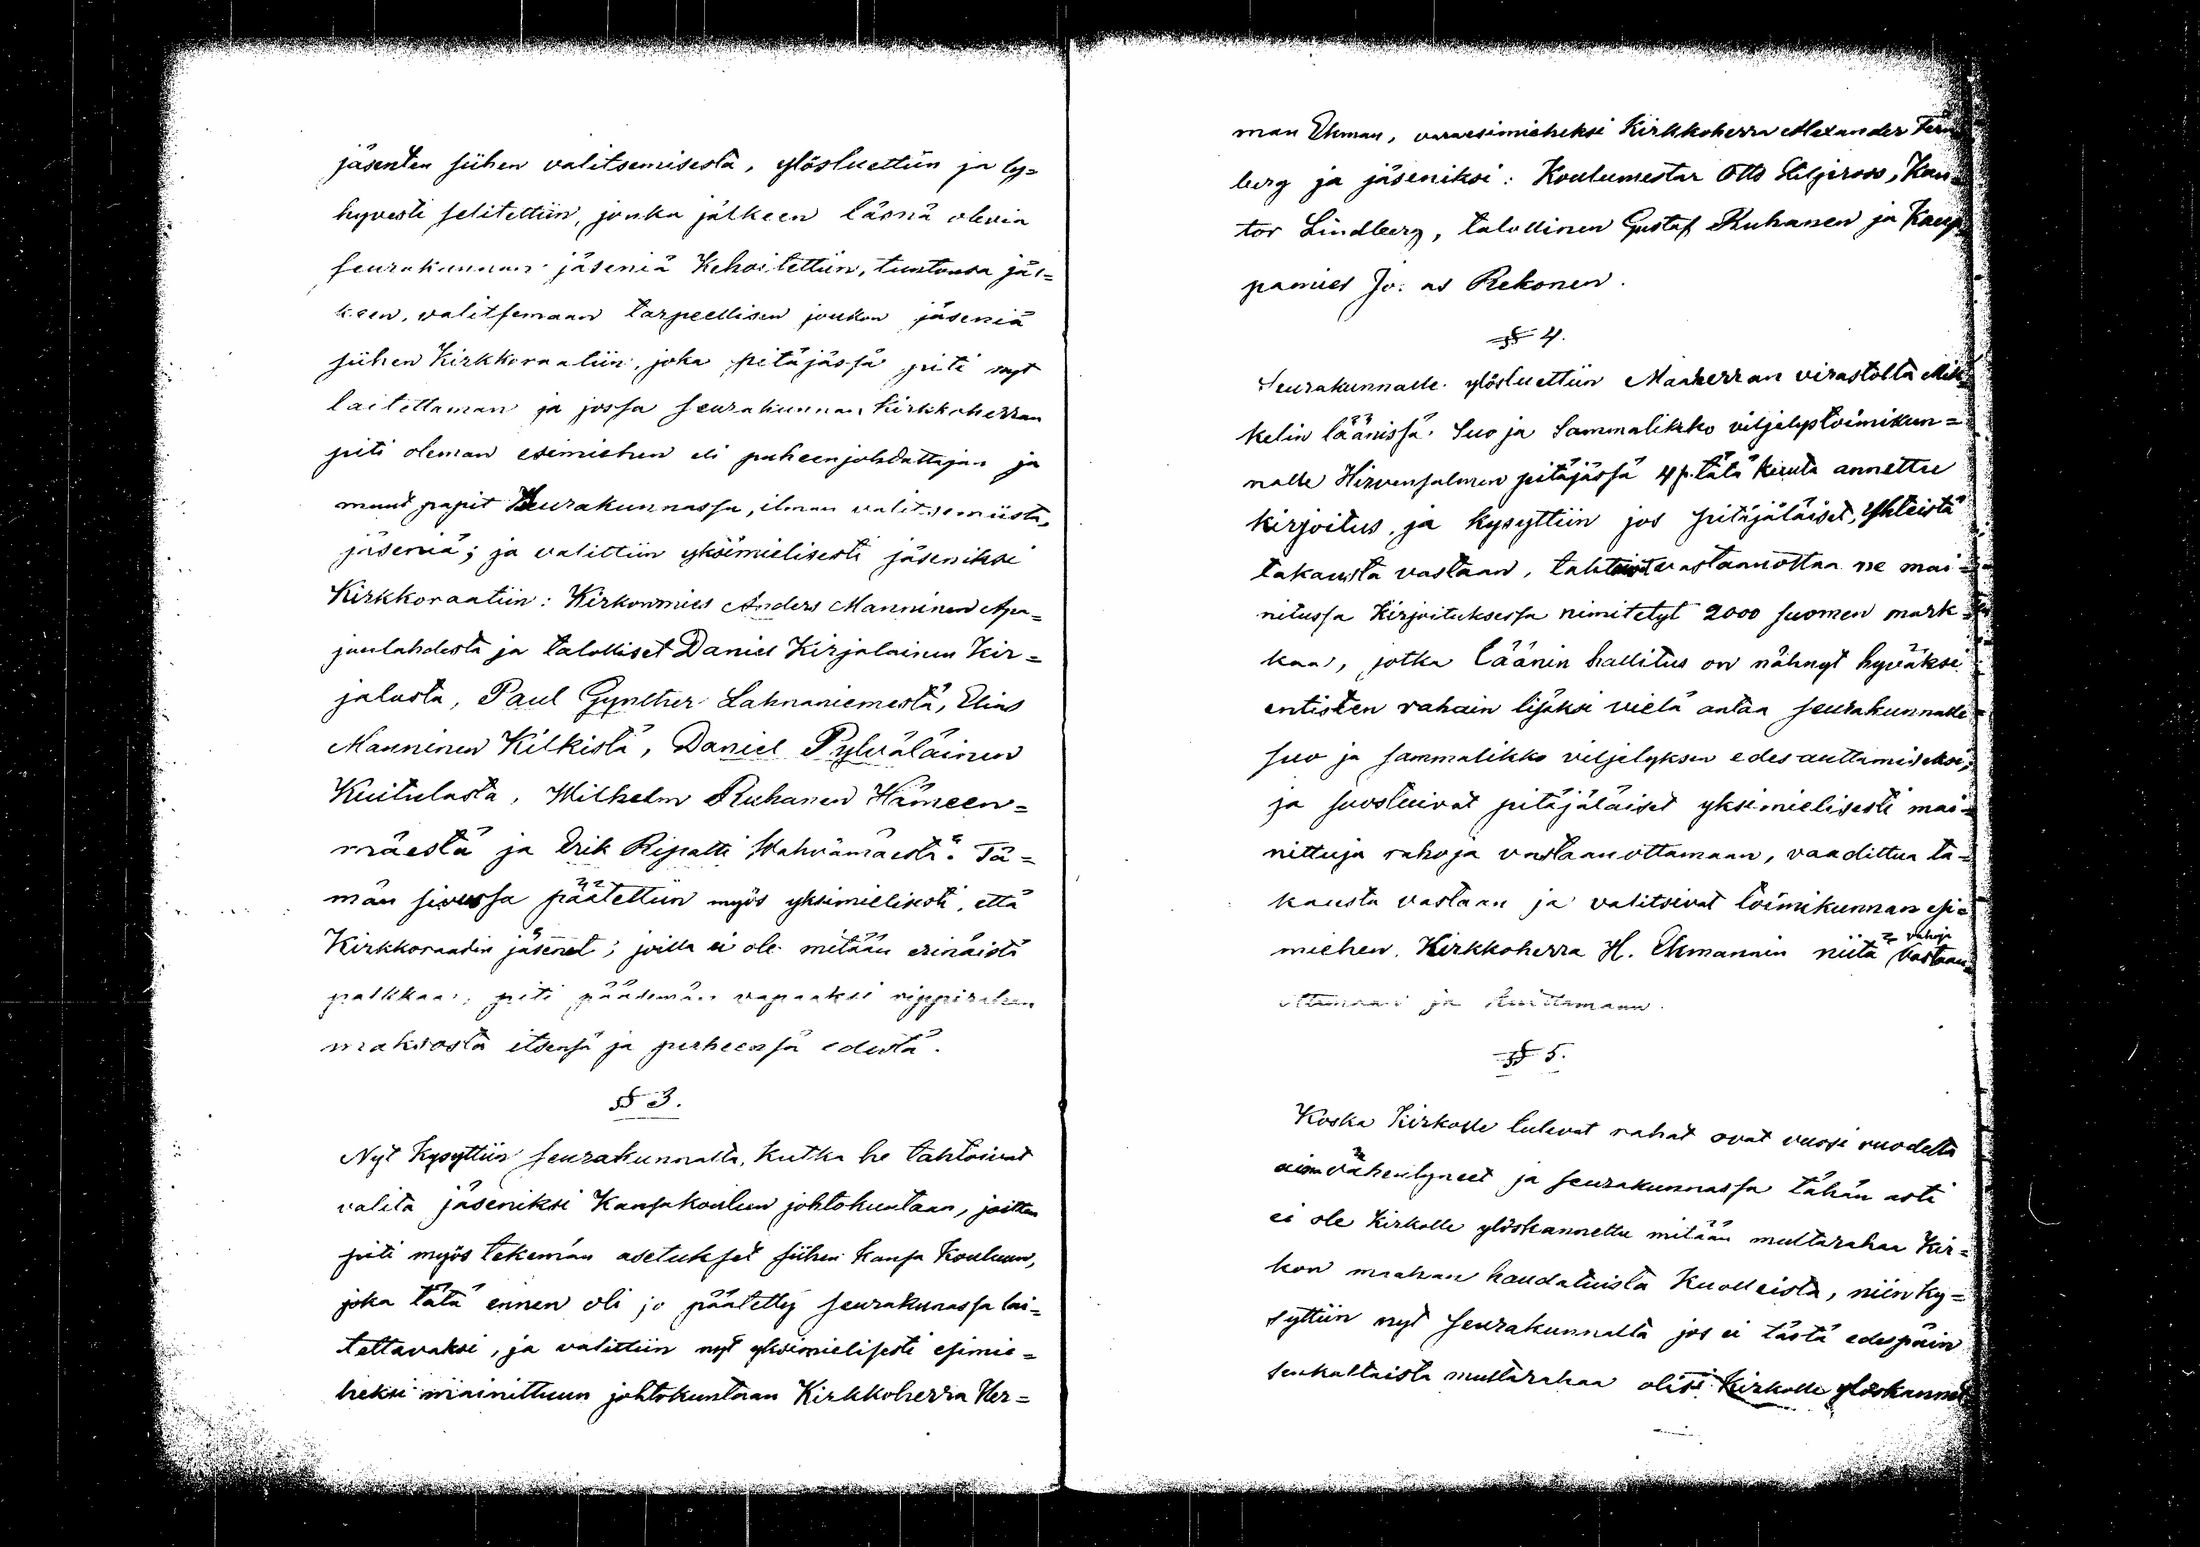 jäsenten siihen valitsemisesta, ylösluettiin ja ly=
hyvesti selitettiin, jonka jälkeen läsnä olevia
seurakunnan jäseniä Kehoitettiin, tuntonsa jäl=
keen, valitsemaan tarpeellisen joukon jäseniä
siihen Kirkkoraatiin, joka pitäjässä piti nyt
laitettaman ja jossa seurakunnan Kirkkoherran
piti oleman esimiehen eli puheenjohdattajan ja
muut papit Seurakunnassa, ilman valitsemista,
jäseniä; ja valittiin yksimielisesti jäseniksi
Kirkkoraatiin: Kirkonmies Anders Manninen Apa=
juulahdesta ja talolliset Daniel Kirjalainen Kir=
jalasta, Paul Gynther Lahnaniemestä, Elias
Manninen Kilkistä, Daniel Pylväläinen
Kuitulasta, Wilhelm Ruhanen Hämeen=
mäestä ja Erik Ripatti Wahvamäestä. Tä=
män sivussa päätettiin myös yksimielisesti, että
Kirkkoraadin jäsenet; joilla ei ole mitään erinäistä
palkkaa, piti pääsemän vapaaksi rippirahan
maksosta itsensä ja perheensä edestä.
§ 3.
Nyt Kysyttiin seurakunnalta, Kutka he tahtoisivat
valita jäseniksi Kansakoulun johtokuntaan, joitten
piti myös tekemän asetukset siihen Kansa Kouluun,
joka tätä ennen oli jo päätetty seurakunassa lai=
tettavaksi, ja valittiin nyt yksimielisesti esimie=
heksi mainittuun johtokuntaan Kirkkoherra Her=
man Ekman, varaesimieheksi Kirkkoherra Alexander
berg ja jäseniksi: Koulumestar Otto Kan=
tor Lindberg, talollinen Gustaf Ruhanen ja Kaup=
pamies Rekonen.
§ 4.
Seurakunnalle ylösluettiin Maaherran virastolta Mik=
kelin läänissä Suo ja Sammalikko viljelystoimikun=
nalle Hirvensalmen pitäjässä 4 p. tätä Kuuta annettu
kirjoitus, ja kysyttiin jos pitäjäläiset, Yhteistä
takausta vastaan, vastaanottaa ne mai=
nitussa Kirjoituksessa nimitetyt 2000 suomen mark=
kaa, jotka läänin hallitus on nähnyt hyväksi
entisten rahain lisäksi vielä antaa seurakunnalle
suo ja sammalikko viljelyksen edesauttamiseksi;
ja suostuivat pitäjäläiset yksimielisesti mai=
nittuja rahoja vastaanottamaan, vaadittua ta=
kausta vastaan ja valitsivat toimikunnan esi=
miehen Kirkkoherra H. Ekmannin niitä rahoja vastaan=
ottamaan ja kuittamaan.
§ 5.
Koska Kirkolle tulevat rahat ovat vuosi vuodelta
aina vähentyneet ja seurakunnassa tähän asti
ei ole Kirkolle ylöskannettu mitään multarahaa Kir=
kon maahan haudatuista Kuolleista, niin ky=
syttiin nyt seurakunnalta jos ei tästä edespäin
senkaltaista multarahaa olisi Kirkolle ylöskannet=